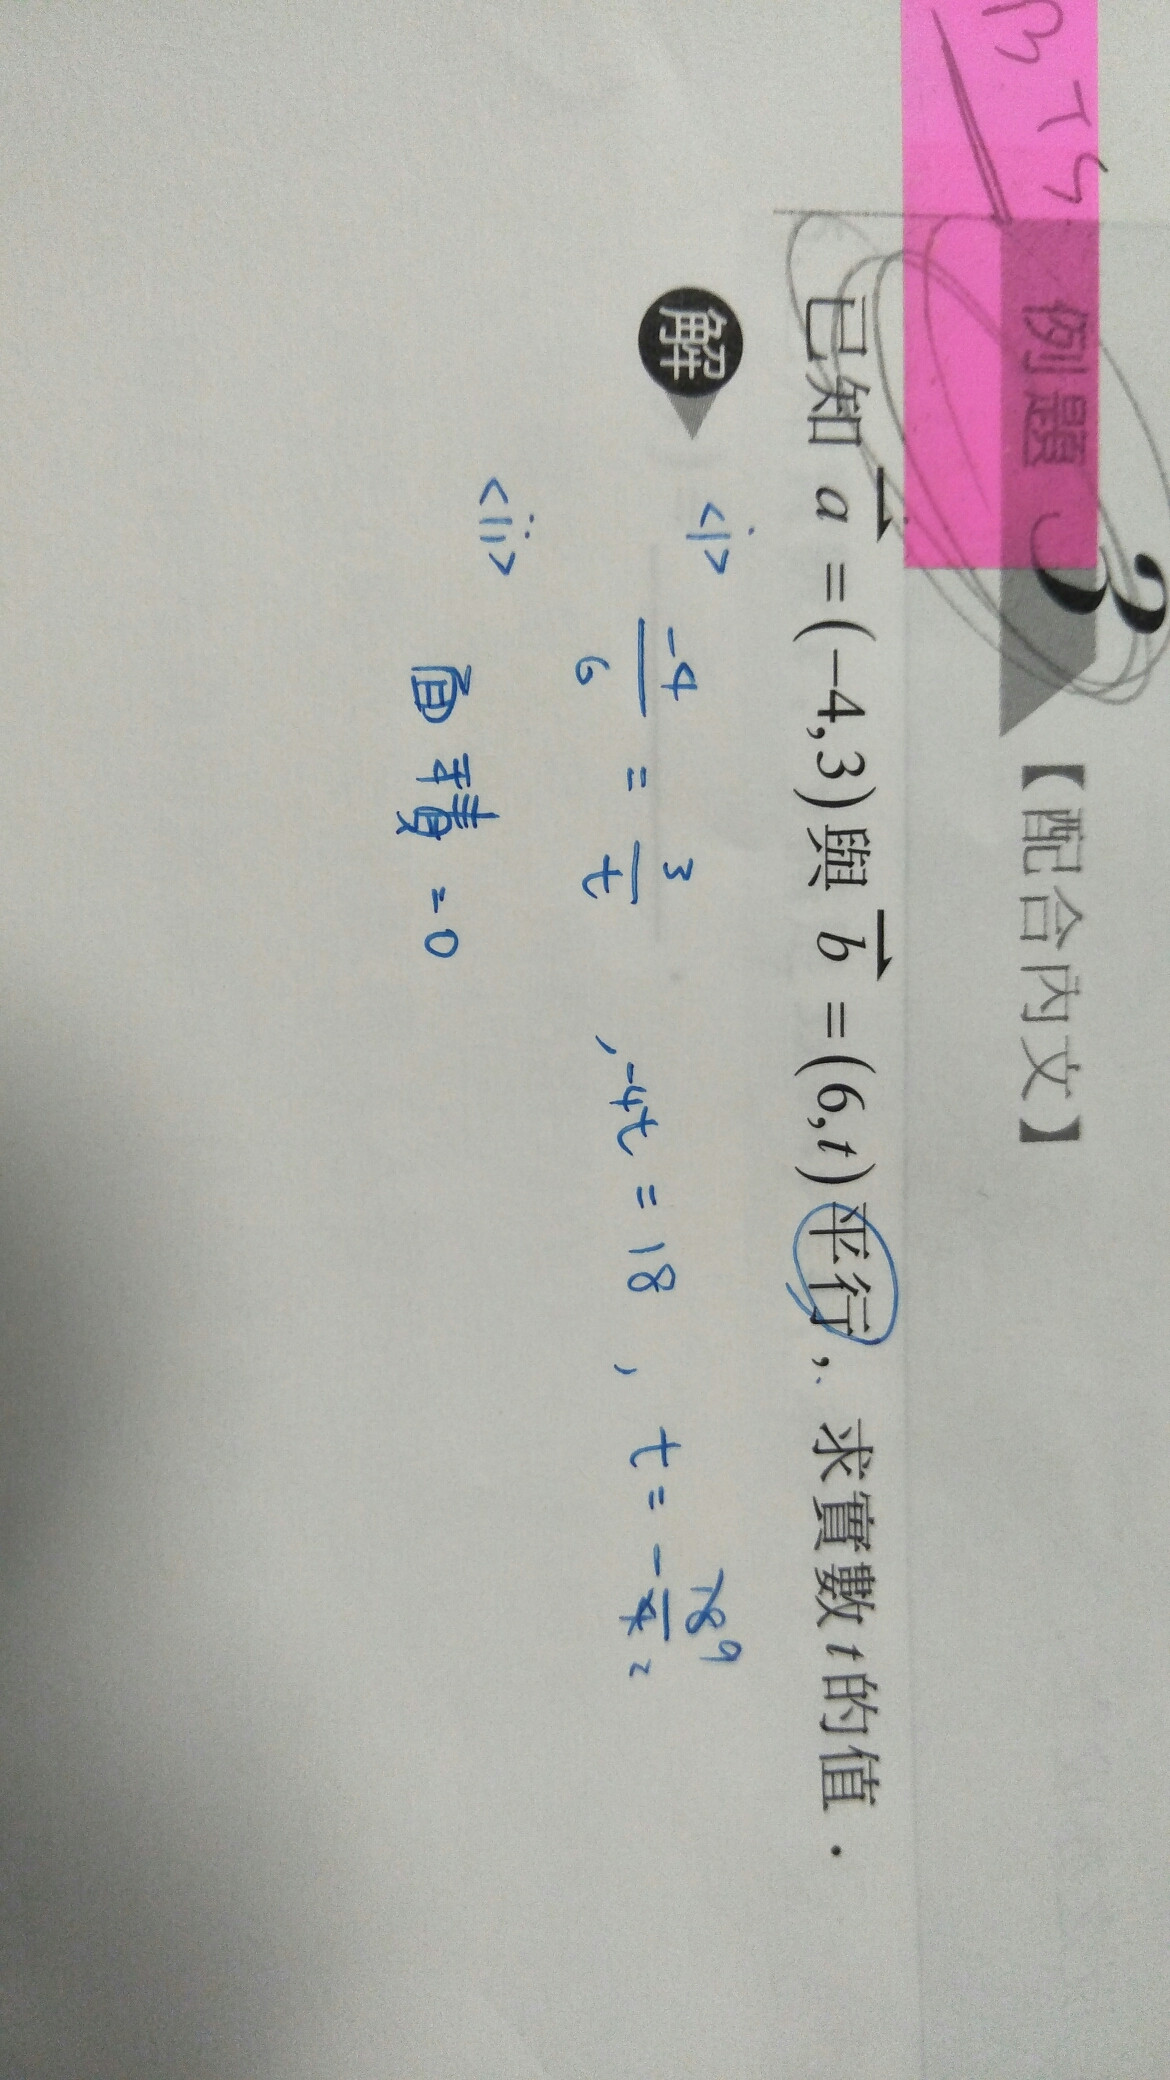 例題 3 【配合內文】
已知 a = (-4,3) 與 b = (6,t) 平行，求實數 t 的值．
解
<i> -4/6 = 3/t , -4t = 18 , t = - 18/4 9 2
<ii> 面積 = 0